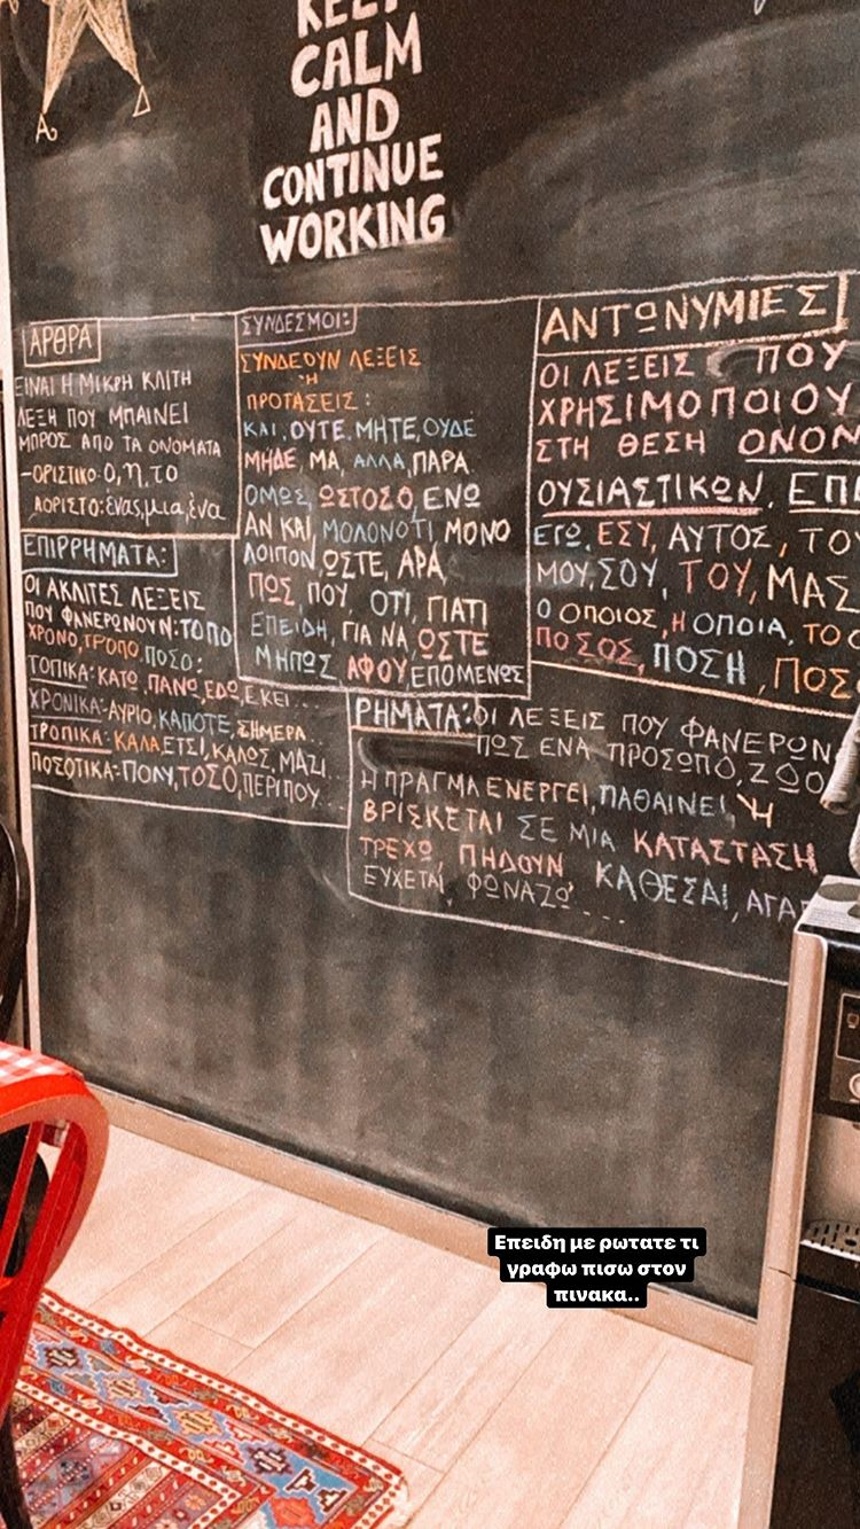 KEEP
CALM
AND
CONTINUE
WORKING
ΑΡΘΡΑ
ΕΙΝΑΙ Η ΜΙΚΡΗ ΚΛΙΤΗ
ΛΕΞΗ ΠΟΥ ΜΠΑΙΝΕΙ
ΜΠΡΟΣ ΑΠΟ ΤΑ ΟΝΟΜΑΤΑ
-ΟΡΙΣΤΙΚΟ: Ο, η, το
ΑΟΡΙΣΤΟ: ένας, μια, ένα
ΕΠΙΡΡΗΜΑΤΑ:
ΟΙ ΑΚΛΙΤΕΣ ΛΕΞΕΙΣ
ΠΟΥ ΦΑΝΕΡΩΝΟΥΝ: ΤΟΠΟ
ΧΡΟΝΟ, ΤΡΟΠΟ, ΠΟΣΟ:
ΤΟΠΙΚΑ: ΚΑΤΩ, ΠΑΝΩ, ΕΔΩ, ΕΚΕΙ...
ΧΡΟΝΙΚΑ:-ΑΥΡΙΟ, ΚΑΠΟΤΕ, ΣΗΜΕΡΑ..
ΤΡΟΠΙΚΑ: ΚΑΛΑ, ΕΤΣΙ, ΚΑΛΩΣ, ΜΑΖΙ..
ΠΟΣΟΤΙΚΑ: ΠΟΛΥ, ΤΟΣΟ, ΠΕΡΙΠΟΥ...
ΣΥΝΔΕΣΜΟΙ:
ΣΥΝΔΕΟΥΝ ΛΕΞΕΙΣ
Ή
ΠΡΟΤΑΣΕΙΣ:
ΚΑΙ, ΟΥΤΕ, ΜΗΤΕ, ΟΥΔΕ
ΜΗΔΕ, ΜΑ, ΑΛΛΑ, ΠΑΡΑ
ΟΜΩΣ, ΩΣΤΟΣΟ, ΕΝΩ
ΑΝ ΚΑΙ, ΜΟΛΟΝΟΤΙ ΜΟΝΟ
ΛΟΙΠΟΝ, ΩΣΤΕ, ΑΡΑ,
ΠΩΣ, ΠΟΥ, ΟΤΙ, ΓΙΑΤΙ
ΕΠΕΙΔΗ, ΓΙΑ ΝΑ, ΩΣΤΕ
ΜΗΠΩΣ, ΑΦΟΥ, ΕΠΟΜΕΝΩΣ
ΑΝΤΩΝΥΜΙΕΣ
ΟΙ ΛΕΞΕΙΣ ΠΟΥ
ΧΡΗΣΙΜΟΠΟΙΟΥ
ΣΤΗ ΘΕΣΗ ΟΝΟΜ
ΟΥΣΙΑΣΤΙΚΩΝ, ΕΠΙ
ΕΓΩ, ΕΣΥ, ΑΥΤΟΣ, ΤΟΥ
ΜΟΥ, ΣΟΥ, ΤΟΥ, ΜΑΣ
Ο ΟΠΟΙΟΣ, Η ΟΠΟΙΑ, ΤΟ Ο
ΠΟΣΟΣ, ΠΟΣΗ, ΠΟΣΟ
ΡΗΜΑΤΑ: ΟΙ ΛΕΞΕΙΣ ΠΟΥ ΦΑΝΕΡΩΝ
ΠΩΣ ΕΝΑ ΠΡΟΣΩΠΟ, ΖΩΟ
Η ΠΡΑΓΜΑ ΕΝΕΡΓΕΙ, ΠΑΘΑΙΝΕΙ, Ή
ΒΡΙΣΚΕΤΑΙ ΣΕ ΜΙΑ ΚΑΤΑΣΤΑΣΗ
ΤΡΕΧΩ, ΠΗΔΟΥΝ ΚΑΘΕΣΑΙ, ΑΓΑΠ
ΕΥΧΕΤΑΙ, ΦΩΝΑΖΩ....
Επειδη με ρωτατε τι
γραφω πισω στον
πινακα..